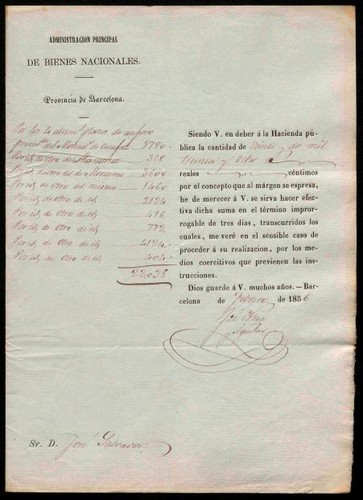 ADMINISTRACION PRINCIPAL
DE BIENES NACIONALES.
Provincia de Barcelona.
8790
Por id. de otro de 328
Por id. de otro de 3600
Por id. de otro del mismo 1460
Por id. de otro de id. 2124
Por id. de otro de id. 416
Por id. de otro de id. 772
Por id. de otro de id. 4124
Por id. de otro de id. 404
22,038
Siendo V. en deber á la Hacienda pú-
blica la cantidad de veinte y dos mil
treinta y ocho
reales céntimos
por el concepto que al márgen se espresa,
he de merecer á V. se sirva hacer efec-
tiva dicha suma en el término impror-
rogable de tres dias, transcurridos los
cuales, me veré en el sensible caso de
proceder á su realizacion, por los me-
dios coercitivos que previenen las ins-
trucciones.
Dios guarde á V. muchos años.—Bar-
celona de Febrero de 1856
Sr. D. José Salvador